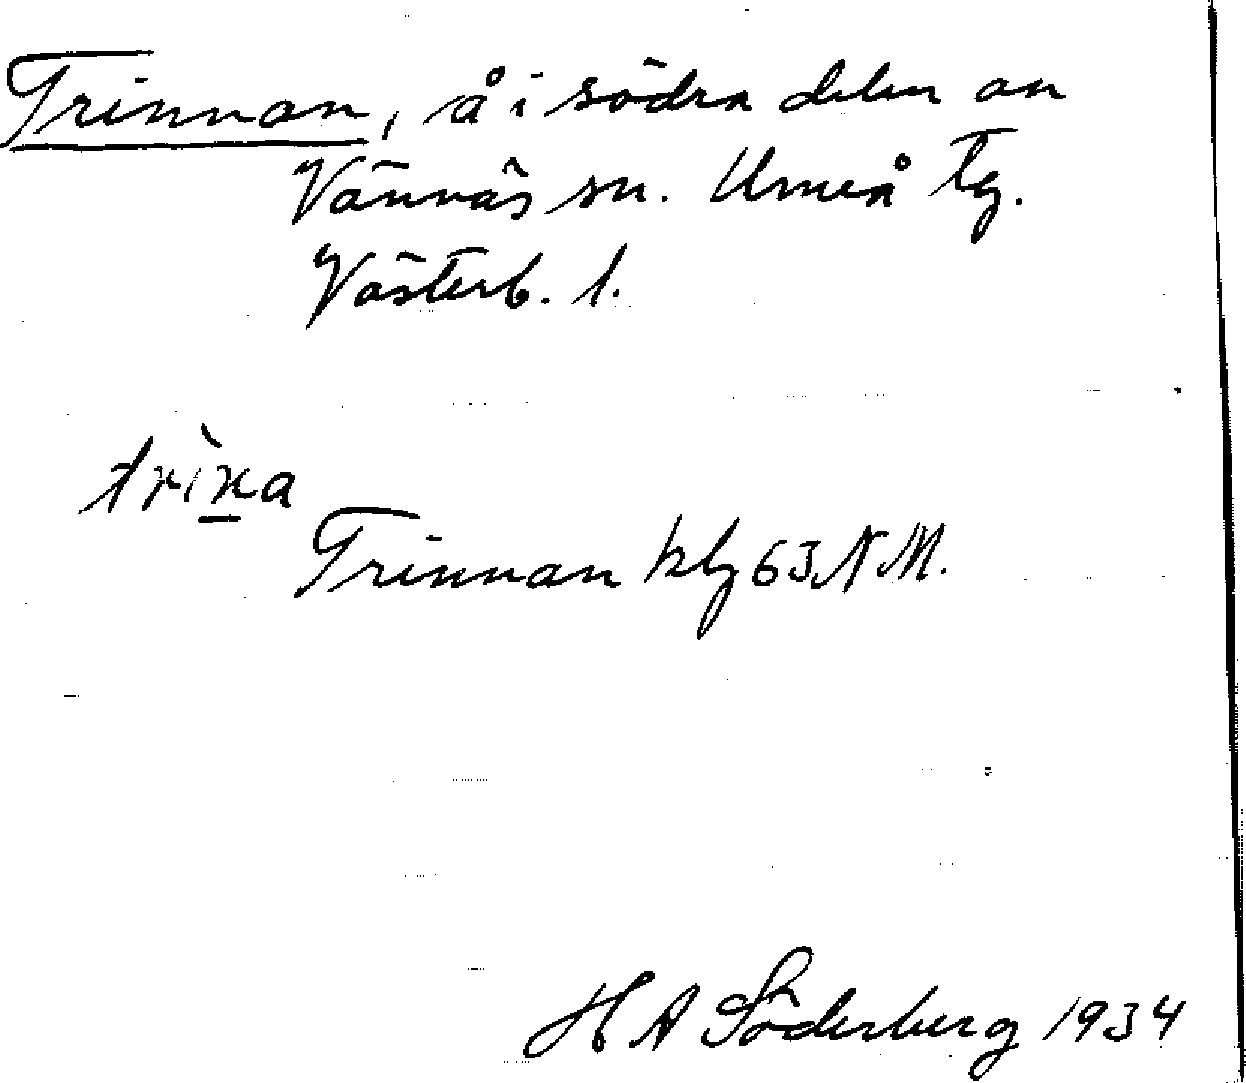 Trinnan, å i södra delen av
Vännäs sn. Umeå tg.
Västerb. l.
trìna
Trinnan kbg 63 N M.
H A Söderberg 1934